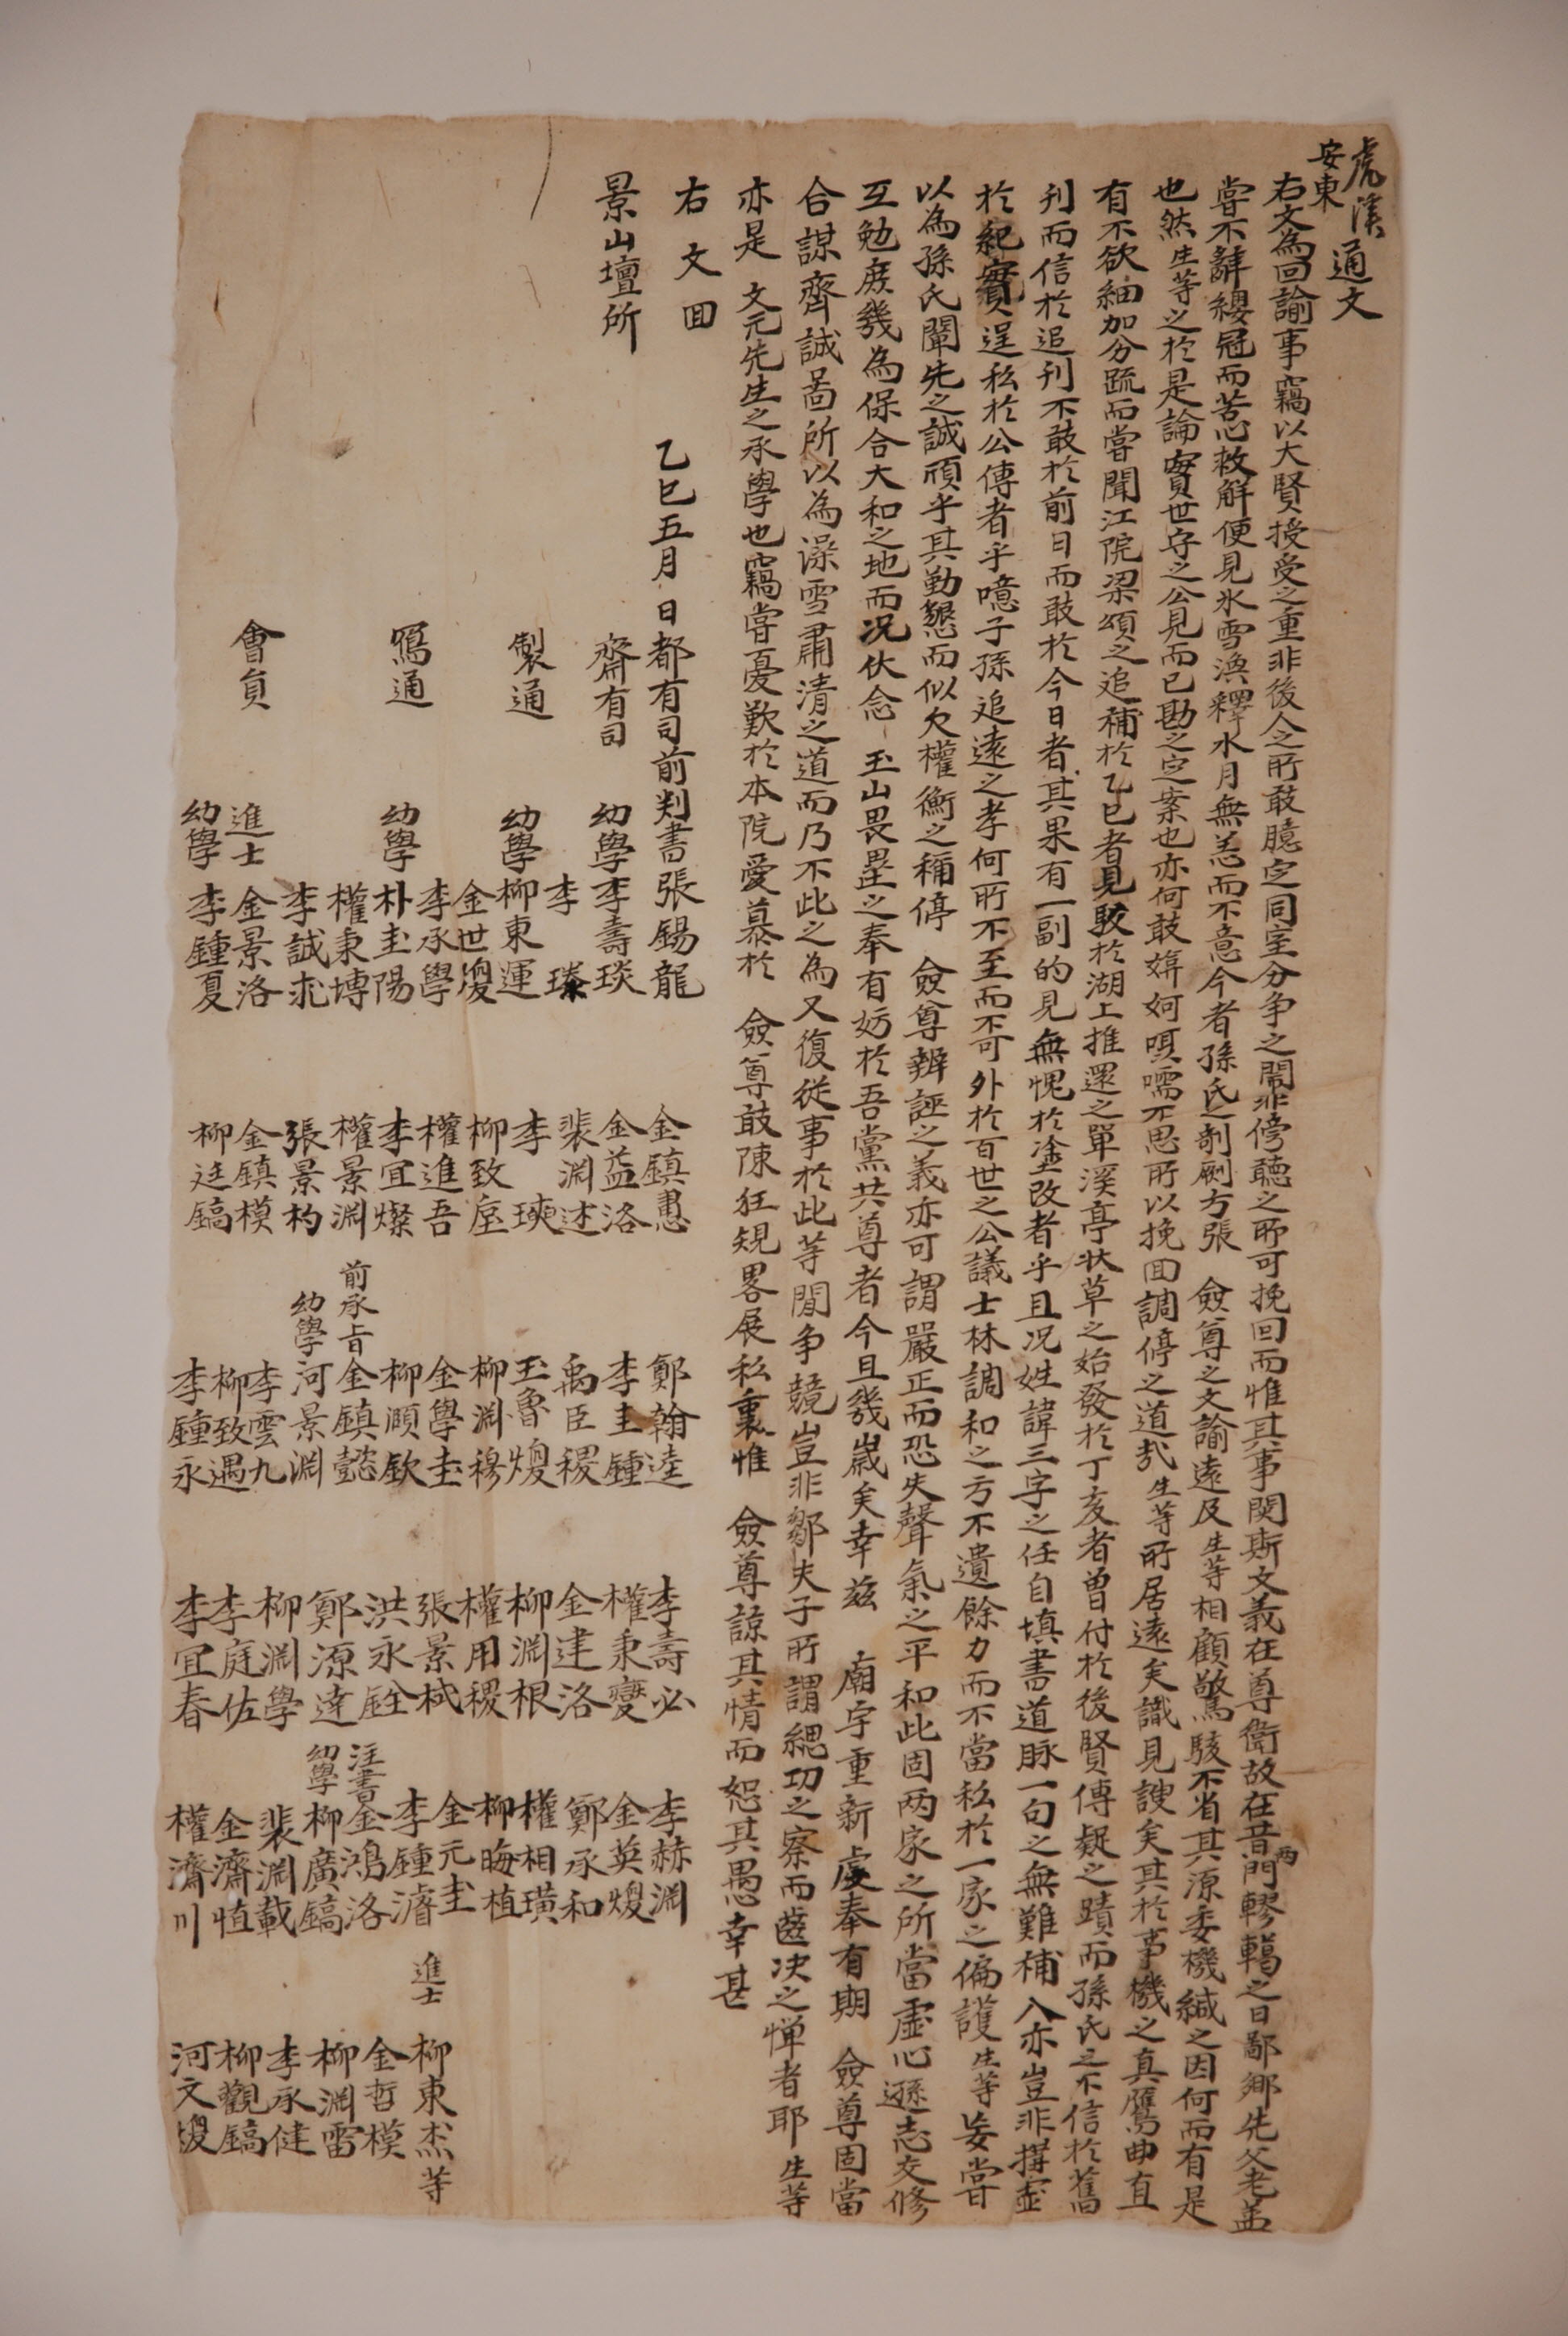 虎溪通文
安東
右文為回諭事竊以大賢授受之重非後人之所敢臆定同室分爭之鬧非傍聽之所可挽回而惟其事関斯文義在尊衛故在昔兩門轇轕之日鄙鄕先父老盖
嘗不辭纓冠而苦心救解便見氷雪渙釋水月無恙而不意今者孫氏之剞劂方張 僉尊之文諭遠及生等相顧驚駭不省其源委機緘之因何而有是
也然生等之於是論實世守之公見而已勘之定案也亦何敢媕婀咡嚅不思所以挽回調停之道哉生等所居遠矣識見謏矣其於事機之真贗曲直
有不欲細加分䟽而嘗聞江院梁頌之追補於乙巳者見敗於湖上推還之單溪亭狀草之始發於丁亥者曾付於後賢傳疑之蹟而孫氏之不信於舊
刊而信於追刊不敢於前日而敢於今日者其果有一副的見無愧於塗改者乎且况姓諱三字之任自填書道脉一句之無難補入亦豈非搆虛
於紀實逞私於公傳者乎噫子孫追遠之孝何所不至而不可外於百世之公議士林調和之方不遺餘力而不當私於一家之偏護生等妄嘗
以為孫氏闡先之誠頎乎其勤懇而似欠權衡之稱停 僉尊辨誣之義亦可謂嚴正而恐失聲氣之平和此固两家之所當虛心遜志交修
互勉庶幾為保合大和之地而况伏念 玉山畏壘之奉有妨於吾黨共尊者今且幾歲矣幸玆 廟宇重新虔奉有期 僉尊固當
合謀齊誠啚所以為澡雪肅清之道而乃不此之為又復從事於此等閒争競豈非鄒夫子所謂緦功之察而齒决之憚者耶生等
亦是 文元先生之承學也竊嘗憂歎於本院愛慕於 僉尊敢陳狂規畧展私裏惟 僉尊諒其情而恕其愚幸甚
右文回
景山壇所
乙巳五月 日都有司前判書張錫龍 金鎮悳 鄭翰逵 李壽必 李赫淵
齋有司 幼學李壽琰 金益洛 李圭鍾 權秉燮 金英煥
李瑧 裴淵述 禹臣稷 金建洛 鄭承和
製通 幼學柳東運 李瑛 玉魯煥 柳淵根 權相璜
金世煥 柳致㞐 柳淵穆 權用稷 柳晦植
李承學 權進吾 金學圭 張景栻 金元圭 進士柳東杰等
寫通 幼學朴圭陽 李宜燦 柳㶁欽 洪永銓 李鍾濬 金哲模
權秉博 權景淵 前承旨金鎮懿 鄭源達 注書金鴻洛 柳淵雷
李誠求 張景杓 幼學河景淵 柳淵學 幼學柳廣鎬 李承健
會員 進士金景洛 金鎮模 李雲九 李庭佐 裴淵載 柳觀鎬
幼學李鍾夏 柳廷鎬 柳致遇 李宜春 金濟恒 河文煥
李鍾永 權濟川